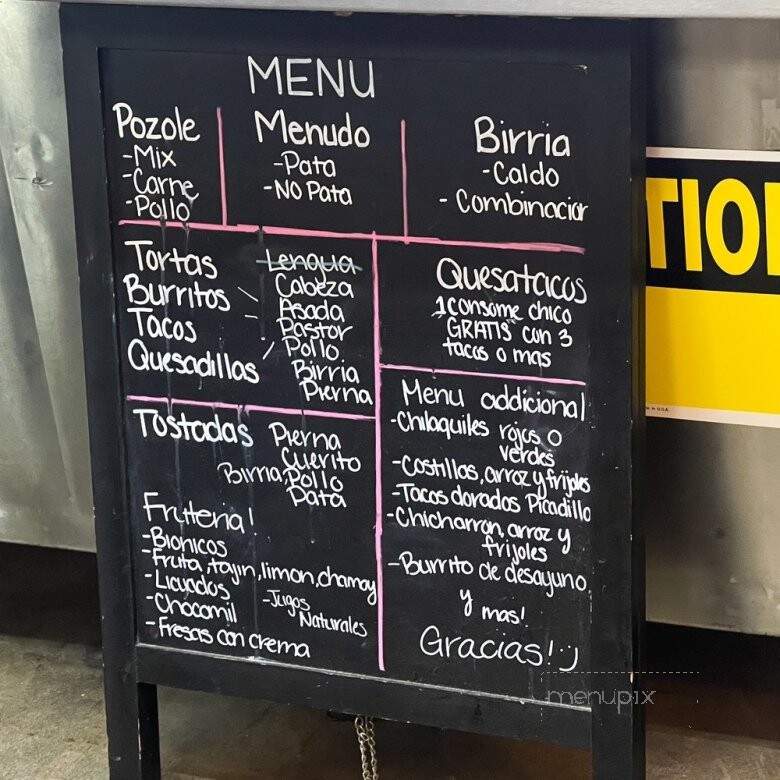 MENU
Pozole
-Mix
-Carne
-Pollo
Menudo
-Pata
-NO Pata
Birria
-Caldo
- Combinacion
Tortas
Burritos
Tacos
Quesadillas
Lengua
Cabeza
Asada
Pastor
Pollo
Birria
Pierna
Quesatacos
1 consome chico
GRATIS con 3
tacos o mas
Tostadas
Pierna
Cuerito
Birria, Pollo
Pata
Fruteria!
-Bionicos
-Fruta, tajin, limon, chamoy
-Licuados
-Chocomil
-Jugos
Naturales
-Fresas con crema
Menu addicional
-Chilaquiles rojos o
verdes
-Costillas, arroz y frijoles
-Tacos dorados Picadillo
-Chicharron, arroz y
frijoles
-Burrito de desayuno
y mas!
Gracias! :)
TIO
IN U.S.A.
menupix